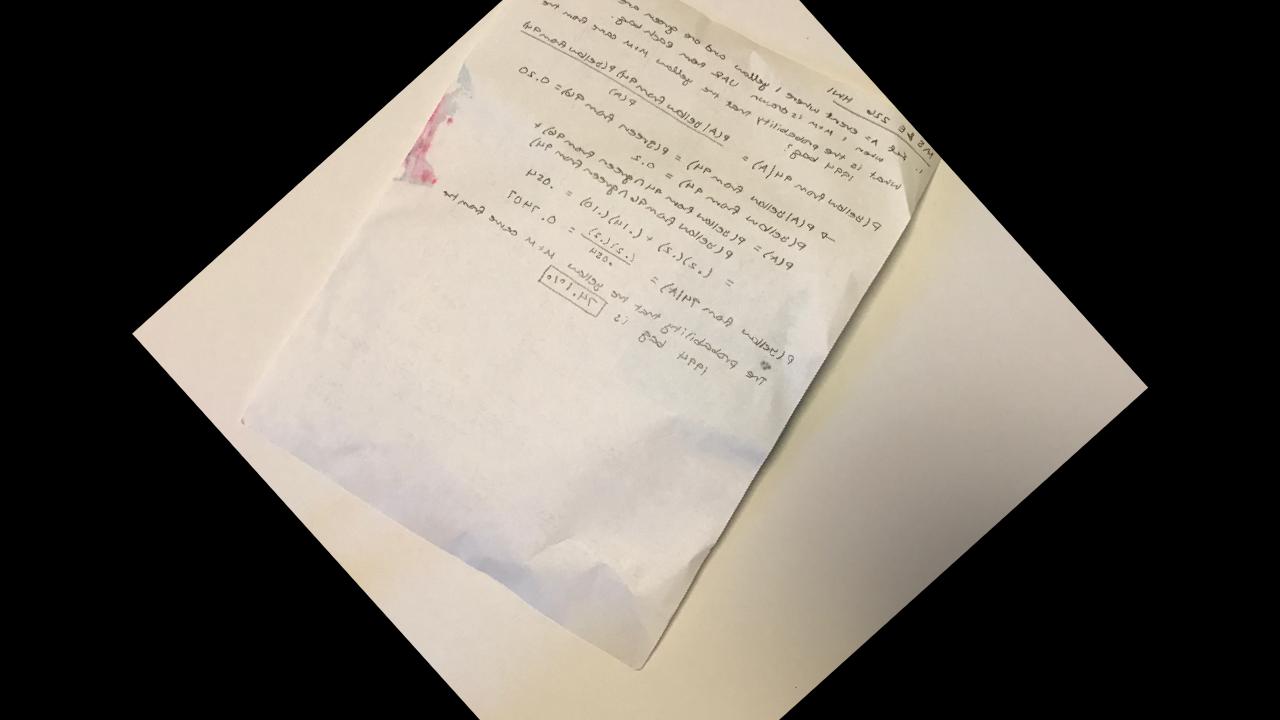 MS&E 226 HW1
1. Let A: event where 1 yellow and one green one
when 1 M+M is drawn UAR from each bag.
What is the probability that the yellow M+M came from the
1994 bag?
P(Yellow from 94|A) = P(A|Yellow from 94) P(Yellow from 94)
P(A)
→ P(A|Yellow from 94) = P(green from 96) = 0.20
P(Yellow from 94) = 0.2
P(A) = P(Yellow from 94 ∩ green from 96) +
P(Yellow from 96 ∩ green from 94)
= (.2)(.2) + (.14)(.10) = .054
P(Yellow from 94|A) = (.2)(.2) = 0.7407
.054
The probability that the yellow M+M came from the
1994 bag is 74.1%